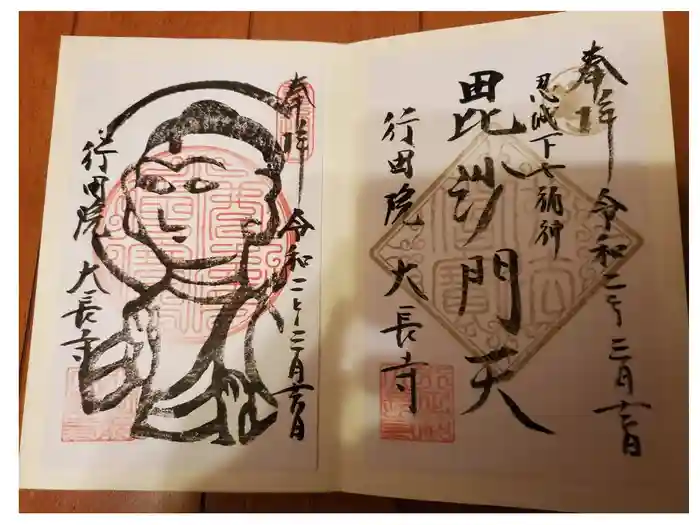 奉拝
忍城下七福神
令和二年三月吉日
毘沙門天
行田院 大長寺
奉拝
令和二年三月吉日
行田院 大長寺